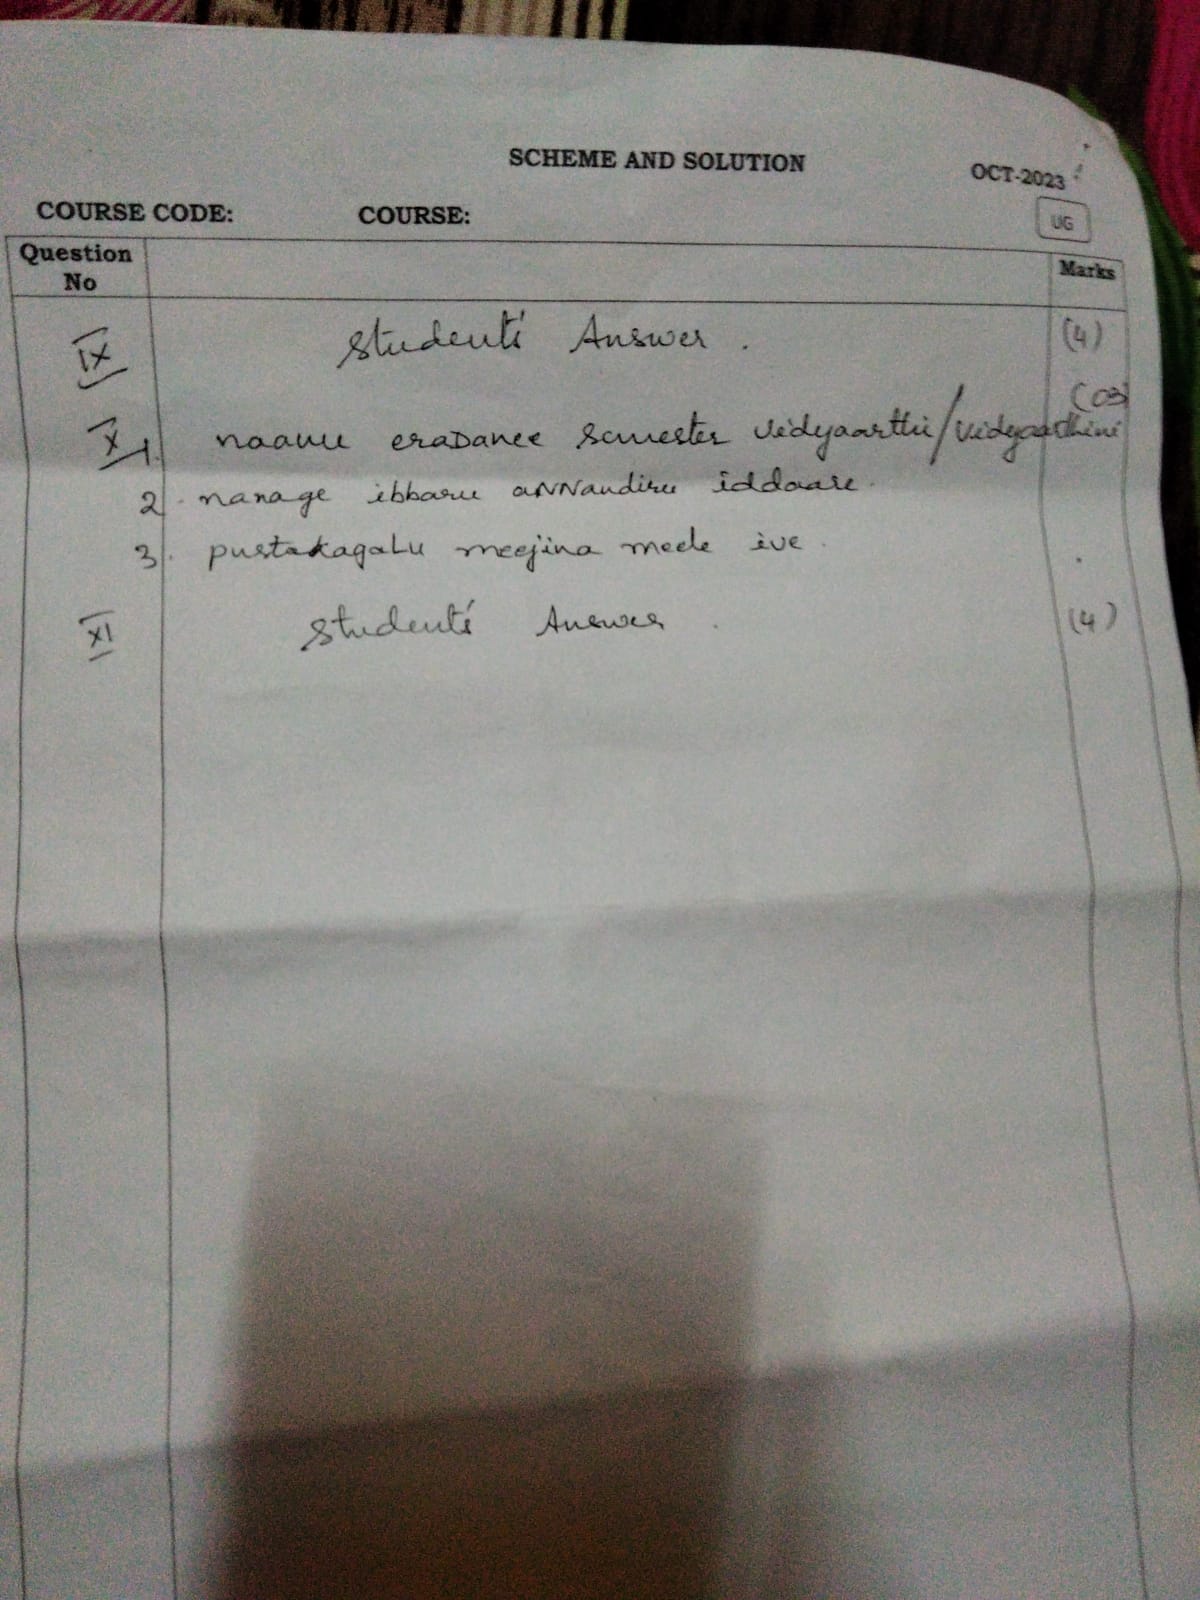 SCHEME AND SOLUTION
OCT-2023
COURSE CODE: COURSE:
UG
Question No
Marks
IX Student's Answer. (4)
(03)
X 1. naanu eraDanee semester vidyaarthi/vidyaarthini
2. nanage ibbaru aNNandiru iddaare.
3. pustakagaLu meejina meele ive.
XI Student's Answer. (4)